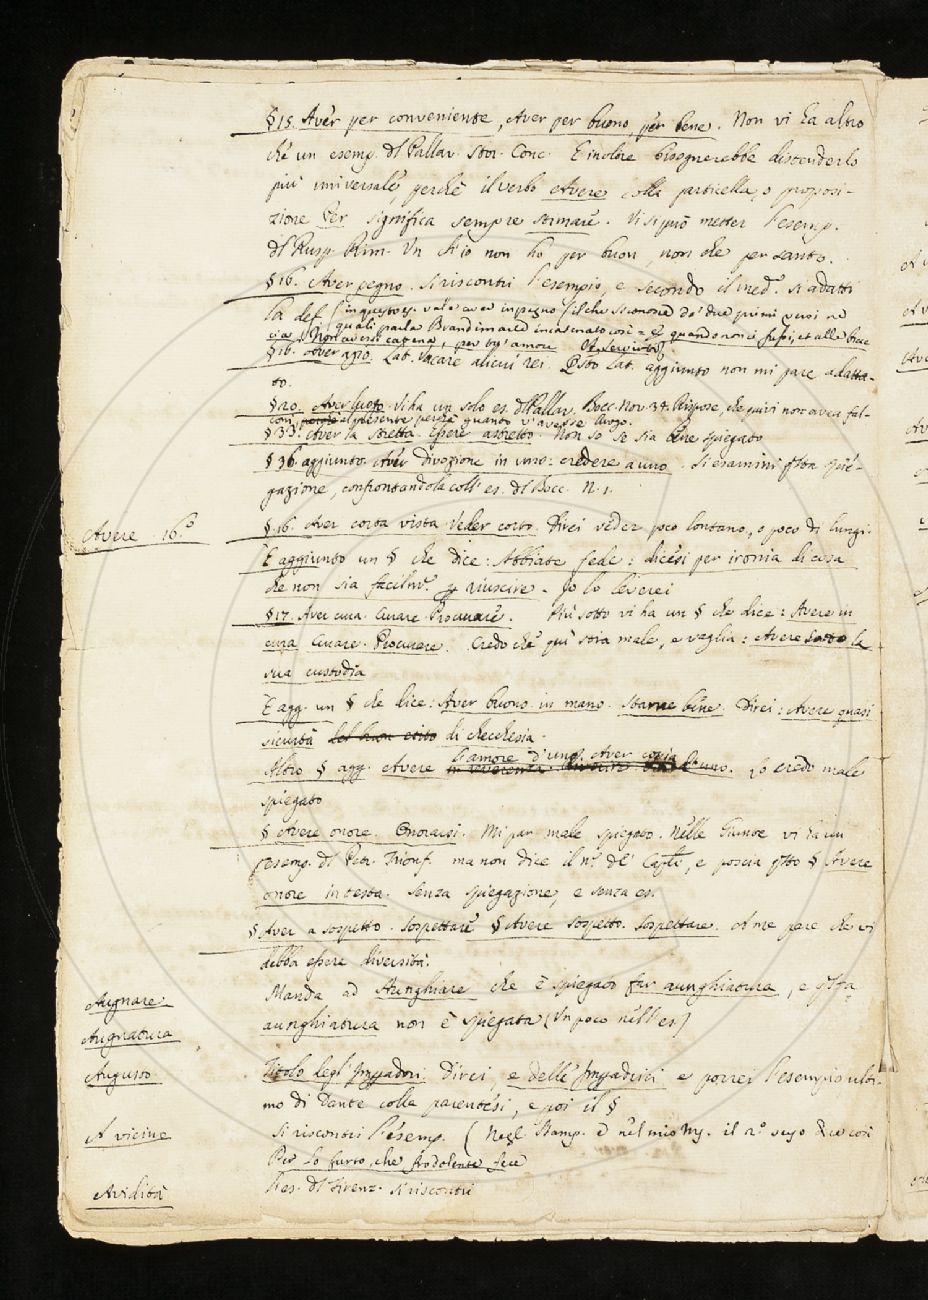 § 15. Aver per conveniente, Aver per buono, per bene. Non vi ha altro
che un esemp. del Pallav. Stor. Conc. E inoltre bisognerebbe distenderlo
più universale, perchè il verbo Avere colla particella, o proposi-
zione Per significa sempre stimare. Vi si può metter l'esemp.
del Rusp. Rim. Un ch'io non ho per buon, non che per santo.
§ 16. Aver pegno. Si riscontri l'esempio, e secondo il med.º si adatti
la def. (in questo es. vale aver in pegno
quali parla Brandimarte incatenato così = E quando non ci fussi, et alle
Non avessi catena, per tuo amore
§ 16. Aver agio. Lat. Vacare alicui rei. Questo Lat. aggiunto non mi pare adatta-
to.
§ 20. Aver luogo. Vi ha un solo es. del Pallav. Bocc. Nov. 34. Rispose, che quivi non avea fal-
coni al presente perchè guanto v'avesse luogo.
§ 33. Aver la stretta. Essere astretto. Non so se sia bene spiegato
§ 36. aggiunto. Aver divozione in uno: credere a uno. Si esamini questa spie-
gazione, confrontandola coll' es. del Bocc. N. 1.
Avere. 16.º
§. 16. Aver corta vista. Veder corto. Direi veder poco lontano, o poco di lungi.
E aggiunto un § che dice: Abbiate fede: dicesi per ironia di cosa
che non sia facilm.e per riuscire. Io lo leverei
§ 17. Aver cura. Curare. Procurare. Più sotto vi ha un § che dice: Avere in
cura. Curare. Procurare. Credo che quì stia male, e voglia: Avere sotto la
sua custodia
E agg. un § che dice: Aver buono in mano. Starne bene. Direi: Avere quasi
sicurtà del buon esito di checchesia.
Altro § agg. Avere l'amore d'uno. Aver copia d'uno. Lo credo male
spiegato
§ Avere onore. Onorarsi. Mi par male spiegato. Nelle Giunte vi ha un
esemp. del Petr. Trionf. ma non dice il n.º de' Cap.li, e poscia questo § Avere
onore in testa. Senza spiegazione, e senza es.
§ Aver a sospetto. Sospettare § Avere sospetto. Sospettare. A me pare che vi
debba essere diversità.
Augnare
Manda ad Aunghiare che è spiegato far aunghiatura, e questa
Augnatura
aunghiatura non è spiegata (Un poco nell' es.)
Augusto
Titolo degl' Imperadori Direi, e delle Imperadrici e porrei l'esempio ulti-
mo di Dante colla parentesi, e poi il §
A vicine
Si riscontri l'esemp. (Negl. Stamp. e nel mio Ms. il 2.º verso dice così
Per lo furto, che frodolente fece
Avidità
L'es. del Firenz. si riscontri